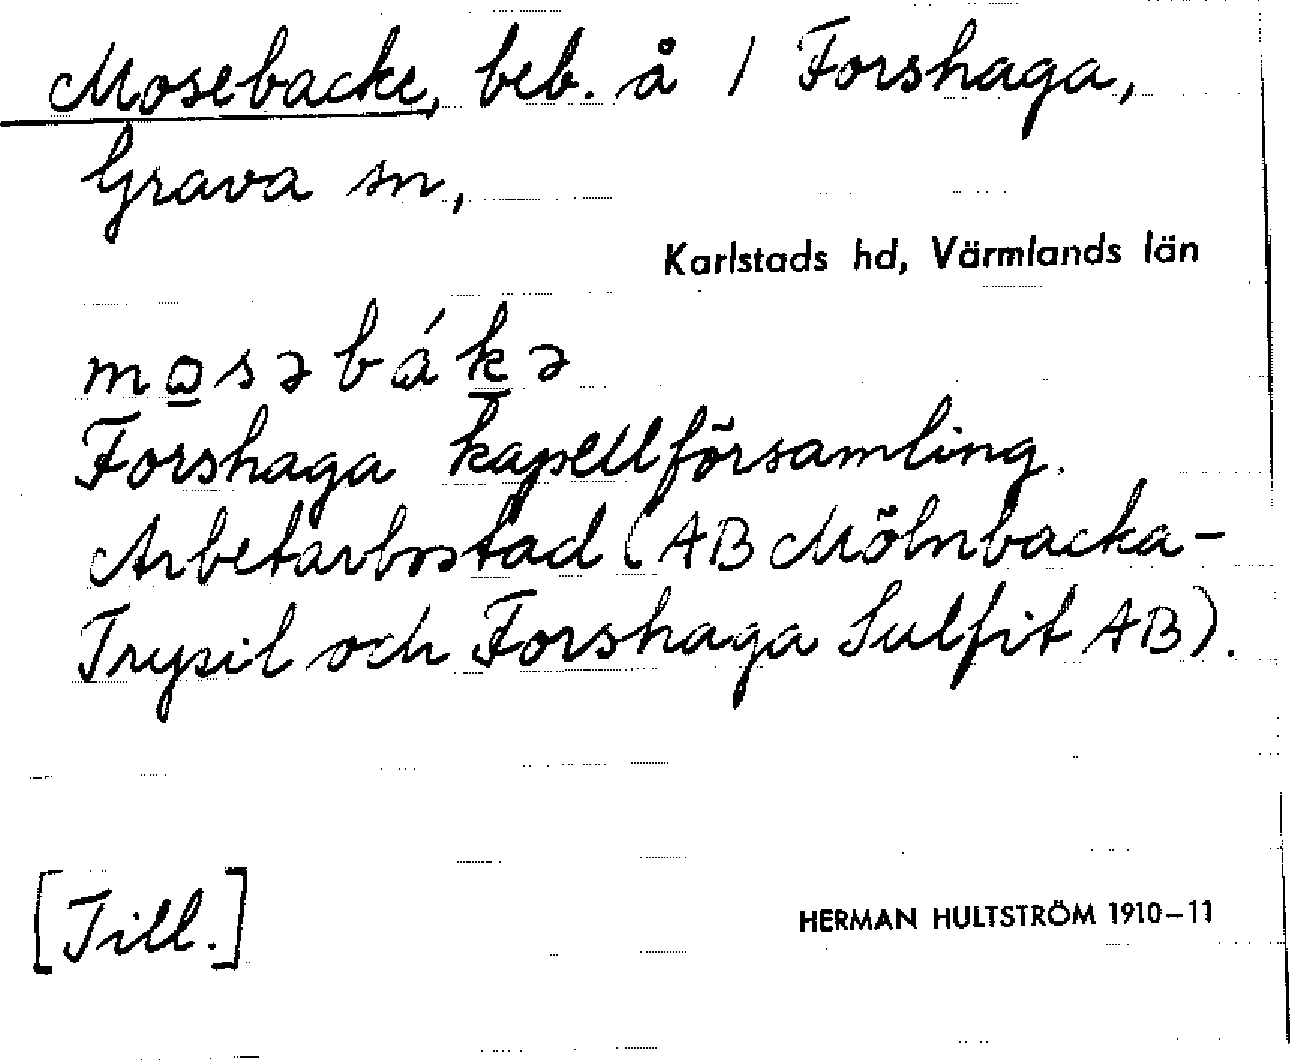 Mosebacke, beb. å 1 Forshaga,
Grava sn,
Karlstads hd, Värmlands län
mo̲səbák̲ə
Forshaga kapellförsamling.
Arbetarbostad (AB Mölnbacka-
Trysil och Forshaga Sulfit AB).
[Till.]
HERMAN HULTSTRÖM 1910–11